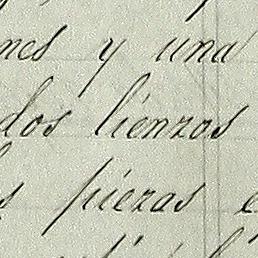 nes y una
dos lienzos
s piezas e